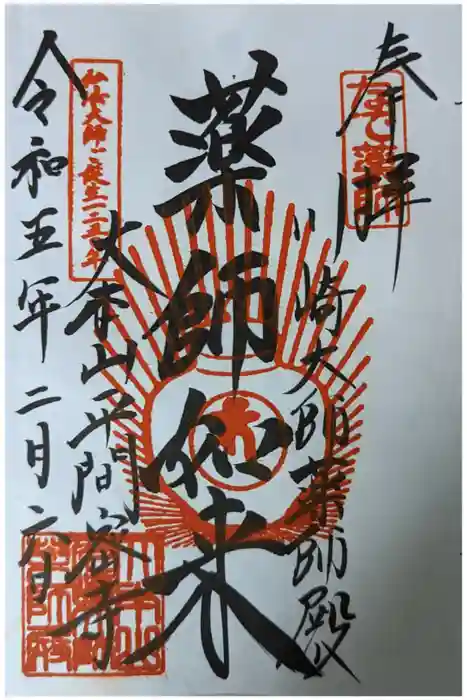 奉拝
なで薬師
川崎大師薬師殿
薬師如来
大本山平間寺
弘法大師ご誕生一二五〇年
令和五年二月六日